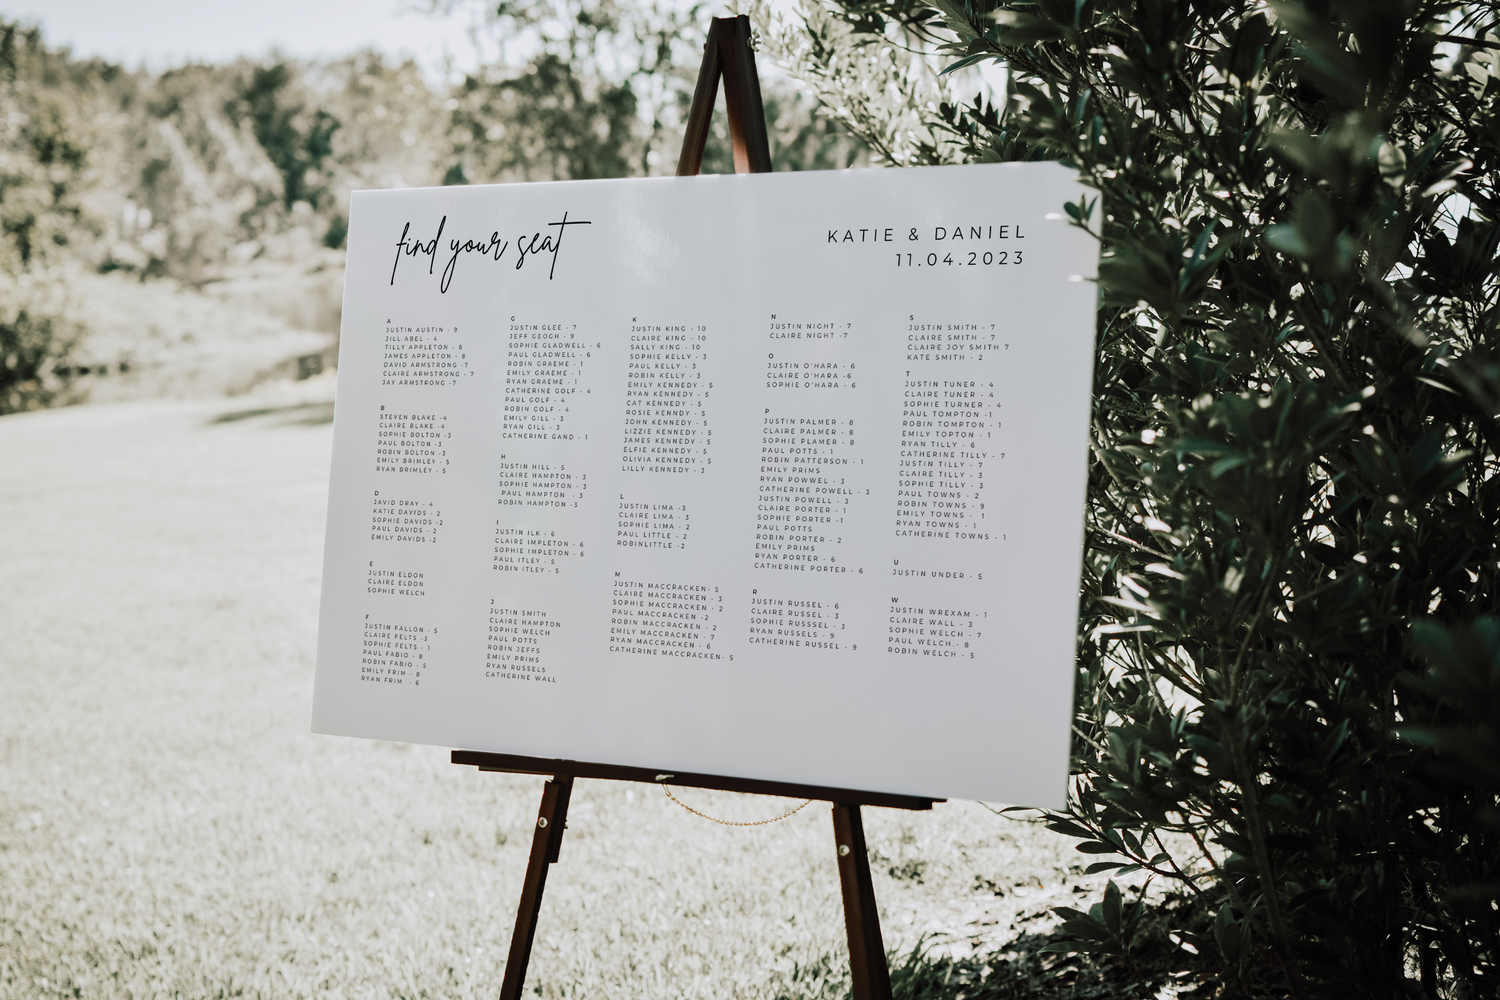 find your seat
KATIE & DANIEL
11.04.2023
A
JUSTIN AUSTIN - 9
JILL ABEL - 4
TILLY APPLETON - 8
JAMES APPLETON - 8
DAVID ARMSTRONG -7
CLAIRE ARMSTRONG - 7
JAY ARMSTRONG -7
B
STEVEN BLAKE -4
CLAIRE BLAKE -4
SOPHIE BOLTON -3
PAUL BOLTON -3
ROBIN BOLTON -3
EMILY BRIMLEY - 5
RYAN BRIMLEY - 5
D
DAVID DRAY - 4
KATIE DAVIDS - 2
SOPHIE DAVIDS -2
PAUL DAVIDS - 2
EMILY DAVIDS -2
E
JUSTIN ELDON
CLAIRE ELDON
SOPHIE WELCH
F
JUSTIN FALLON - 5
CLAIRE FELTS -3
SOPHIE FELTS - 1
PAUL FABIO - 8
ROBIN FABIO - 5
EMILY FRIM - 8
RYAN FRIM - 6
G
JUSTIN GLEE - 7
JEFF GEOGH - 9
SOPHIE GLADWELL - 6
PAUL GLADWELL - 6
ROBIN GRAEME - 1
EMILY GRAEME - 1
RYAN GRAEME - 1
CATHERINE GOLF - 4
PAUL GOLF - 4
ROBIN GOLF - 4
EMILY GILL - 3
RYAN GILL - 3
CATHERINE GAND - 1
H
JUSTIN HILL - 5
CLAIRE HAMPTON - 3
SOPHIE HAMPTON - 3
PAUL HAMPTON - 3
ROBIN HAMPTON -3
I
JUSTIN ILK - 6
CLAIRE IMPLETON - 6
SOPHIE IMPLETON - 6
PAUL ITLEY - 5
ROBIN ITLEY - 5
J
JUSTIN SMITH
CLAIRE HAMPTON
SOPHIE WELCH
PAUL POTTS
ROBIN JEFFS
EMILY PRIMS
RYAN RUSSELS
CATHERINE WALL
K
JUSTIN KING - 10
CLAIRE KING - 10
SALLY KING - 10
SOPHIE KELLY - 3
PAUL KELLY - 3
ROBIN KELLY - 3
EMILY KENNEDY - 5
RYAN KENNEDY - 5
CAT KENNEDY - 5
ROSIE KENNDY - 5
JOHN KENNEDY - 5
LIZZIE KENNEDY - 5
JAMES KENNEDY - 5
ELFIE KENNEDY - 5
OLIVIA KENNEDY - 5
LILLY KENNEDY - 3
L
JUSTIN LIMA -3
CLAIRE LIMA - 3
SOPHIE LIMA - 2
PAUL LITTLE - 2
ROBINLITTLE -2
M
JUSTIN MACCRACKEN- 5
CLAIRE MACCRACKEN - 3
SOPHIE MACCRACKEN - 2
PAUL MACCRACKEN -2
ROBIN MACCRACKEN - 2
EMILY MACCRACKEN - 7
RYAN MACCRACKEN - 6
CATHERINE MACCRACKEN- 5
N
JUSTIN NIGHT - 7
CLAIRE NIGHT -7
O
JUSTIN O'HARA - 6
CLAIRE O'HARA -6
SOPHIE O'HARA - 6
P
JUSTIN PALMER - 8
CLAIRE PALMER - 8
SOPHIE PLAMER - 8
PAUL POTTS - 1
ROBIN PATTERSON - 1
EMILY PRIMS
RYAN POWWEL - 3
CATHERINE POWELL - 3
JUSTIN POWELL - 3
CLAIRE PORTER - 1
SOPHIE PORTER -1
PAUL POTTS
ROBIN PORTER - 2
EMILY PRIMS
RYAN PORTER - 6
CATHERINE PORTER - 6
R
JUSTIN RUSSEL - 6
CLAIRE RUSSEL - 3
SOPHIE RUSSSEL - 3
RYAN RUSSELS - 9
CATHERINE RUSSEL - 9
S
JUSTIN SMITH - 7
CLAIRE SMITH - 7
CLAIRE JOY SMITH 7
KATE SMITH - 2
T
JUSTIN TUNER - 4
CLAIRE TUNER - 4
SOPHIE TURNER - 4
PAUL TOMPTON -1
ROBIN TOMPTON - 1
EMILY TOPTON - 1
RYAN TILLY - 6
CATHERINE TILLY - 7
JUSTIN TILLY - 7
CLAIRE TILLY - 3
SOPHIE TILLY - 3
PAUL TOWNS - 2
ROBIN TOWNS - 9
EMILY TOWNS - 1
RYAN TOWNS - 1
CATHERINE TOWNS - 1
U
JUSTIN UNDER - 5
W
JUSTIN WREXAM - 1
CLAIRE WALL - 3
SOPHIE WELCH - 7
PAUL WELCH.- 8
ROBIN WELCH - 5